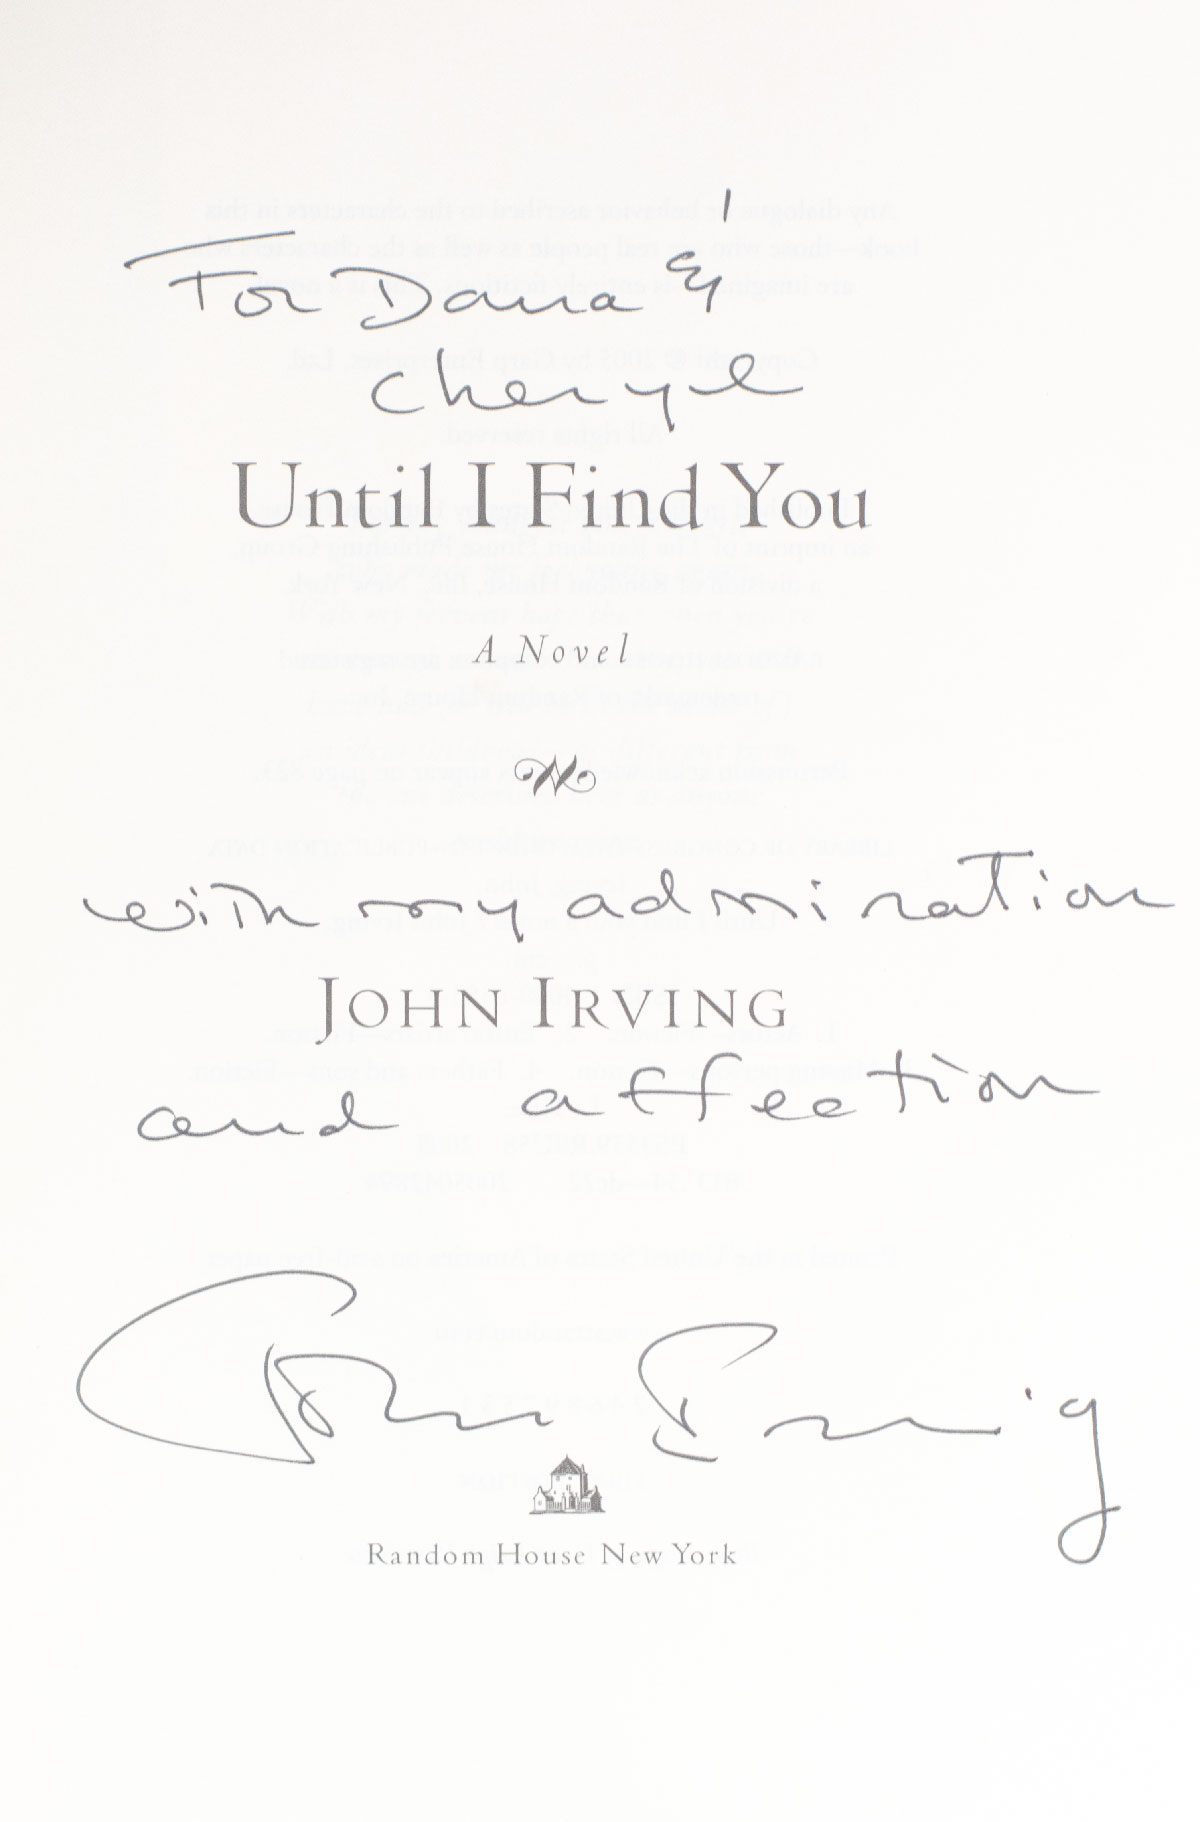 For Dana &
Cheryl
Until I Find You
A Novel
with my admiration
JOHN IRVING
and affection
John Irving
RANDOM HOUSE NEW YORK